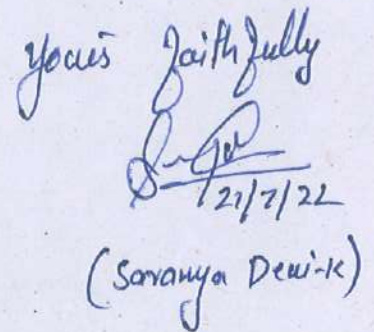 Yours faithfully
21/7/22
(Saranya Devi-K)